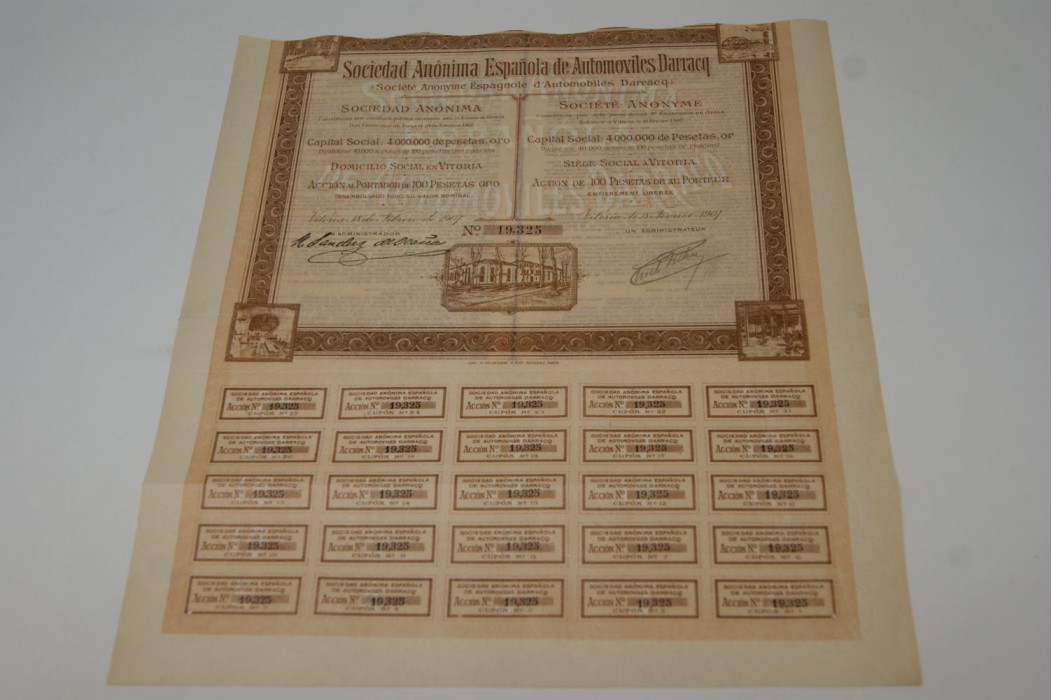 Sociedad Anónima Española de Automoviles Darracq
(Société Anonyme Espagnole d'Automobiles Darracq)
SOCIEDAD ANÓNIMA
Capital Social: 4.000.000 de pesetas, oro
DOMICILIO SOCIAL EN VITORIA
ACCIÓN AL PORTADOR DE 100 PESETAS ORO
DESEMBOLSADO TODO SU VALOR NOMINAL
Vitoria 18 de Febrero de 1907
UN ADMINISTRADOR
SOCIÉTÉ ANONYME
Capital Social: 4.000.000 de Pesetas, or
SIÈGE SOCIAL A VITORIA
ACTION DE 100 PESETAS OR AU PORTEUR
ENTIÈREMENT LIBÉRÉE
Vitoria, le 18 Février 1907
UN ADMINISTRATEUR
Nº 19,325
SOCIEDAD ANÓNIMA ESPAÑOLA
DE AUTOMOVILES DARRACQ
ACCIÓN Nº 19,325
CUPÓN Nº 25
SOCIEDAD ANÓNIMA ESPAÑOLA
DE AUTOMOVILES DARRACQ
ACCIÓN Nº 19,325
CUPÓN Nº 24
SOCIEDAD ANÓNIMA ESPAÑOLA
DE AUTOMOVILES DARRACQ
ACCIÓN Nº 19,325
CUPÓN Nº 23
SOCIEDAD ANÓNIMA ESPAÑOLA
DE AUTOMOVILES DARRACQ
ACCIÓN Nº 19,325
CUPÓN Nº 22
SOCIEDAD ANÓNIMA ESPAÑOLA
DE AUTOMOVILES DARRACQ
ACCIÓN Nº 19,325
CUPÓN Nº 21
SOCIEDAD ANÓNIMA ESPAÑOLA
DE AUTOMOVILES DARRACQ
ACCIÓN Nº 19,325
CUPÓN Nº 20
SOCIEDAD ANÓNIMA ESPAÑOLA
DE AUTOMOVILES DARRACQ
ACCIÓN Nº 19,325
CUPÓN Nº 19
SOCIEDAD ANÓNIMA ESPAÑOLA
DE AUTOMOVILES DARRACQ
ACCIÓN Nº 19,325
CUPÓN Nº 18
SOCIEDAD ANÓNIMA ESPAÑOLA
DE AUTOMOVILES DARRACQ
ACCIÓN Nº 19,325
CUPÓN Nº 17
SOCIEDAD ANÓNIMA ESPAÑOLA
DE AUTOMOVILES DARRACQ
ACCIÓN Nº 19,325
CUPÓN Nº 16
SOCIEDAD ANÓNIMA ESPAÑOLA
DE AUTOMOVILES DARRACQ
ACCIÓN Nº 19,325
CUPÓN Nº 15
SOCIEDAD ANÓNIMA ESPAÑOLA
DE AUTOMOVILES DARRACQ
ACCIÓN Nº 19,325
CUPÓN Nº 14
SOCIEDAD ANÓNIMA ESPAÑOLA
DE AUTOMOVILES DARRACQ
ACCIÓN Nº 19,325
CUPÓN Nº 13
SOCIEDAD ANÓNIMA ESPAÑOLA
DE AUTOMOVILES DARRACQ
ACCIÓN Nº 19,325
CUPÓN Nº 12
SOCIEDAD ANÓNIMA ESPAÑOLA
DE AUTOMOVILES DARRACQ
ACCIÓN Nº 19,325
CUPÓN Nº 11
SOCIEDAD ANÓNIMA ESPAÑOLA
DE AUTOMOVILES DARRACQ
ACCIÓN Nº 19,325
CUPÓN Nº 10
SOCIEDAD ANÓNIMA ESPAÑOLA
DE AUTOMOVILES DARRACQ
ACCIÓN Nº 19,325
CUPÓN Nº 9
SOCIEDAD ANÓNIMA ESPAÑOLA
DE AUTOMOVILES DARRACQ
ACCIÓN Nº 19,325
CUPÓN Nº
SOCIEDAD ANÓNIMA ESPAÑOLA
DE AUTOMOVILES DARRACQ
ACCIÓN Nº 19,325
CUPÓN Nº 7
SOCIEDAD ANÓNIMA ESPAÑOLA
DE AUTOMOVILES DARRACQ
ACCIÓN Nº 19,325
CUPÓN Nº 6
SOCIEDAD ANÓNIMA ESPAÑOLA
DE AUTOMOVILES DARRACQ
ACCIÓN Nº 19,325
CUPÓN Nº
SOCIEDAD ANÓNIMA ESPAÑOLA
DE AUTOMOVILES DARRACQ
ACCIÓN Nº 19,325
CUPÓN Nº
SOCIEDAD ANÓNIMA ESPAÑOLA
DE AUTOMOVILES DARRACQ
ACCIÓN Nº 19,325
CUPÓN Nº
SOCIEDAD ANÓNIMA ESPAÑOLA
DE AUTOMOVILES DARRACQ
ACCIÓN Nº 19,325
CUPÓN Nº
SOCIEDAD ANÓNIMA ESPAÑOLA
DE AUTOMOVILES DARRACQ
ACCIÓN Nº 19,325
CUPÓN Nº